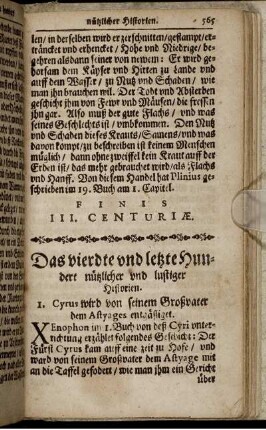 nützlicher Historien. 565
len/ in derselben wird er zerschnitten/gestampf/er-
träncket und erhencket/ Hohe und Niedrige/ be-
gehren alsdann seiner von newem: Er wird ge-
horsam dem Käyser und Hirten zu Lande und
auff dem Wasser/ zu Nutz und Schaden/ wie
man ihn brauchen wil. Der Todt und Absterben
geschicht ihm von Fewr und Mäusen/ die fressen
ihn gar. Also muß der gute Flachs/ und was
seines Geschlechts ist/ umbkommen. Den Nutz
und Schaden dieses Krauts/ Samens/ und was
davon kompt/ zu beschreiben ist keinem Menschen
müglich/ dann ohne zweiffel kein Kraut auff der
Erden ist/ das mehr gebrauchet wird/ als Flachs
und Hanff. Von diesem Handel hat Plinius ge-
schrieben im 19. Buch am 1. Capitel.
FINIS
III. CENTURIÆ.
Das vierdte vnd letzte Hun-
dert nützlicher vnd lustiger
Historien.
1. Cyrus wird von seinem Großvater
dem Astyages
XEnophon im 1. Buch von deß Cyri vnter-
richtung erzählet folgendes Geschicht: Der
Fürst Cyrus kam auff eine zeit zu Hofe/ und
ward von seinem Großvater dem Astyage mit
an die Taffel gefodert/ wie man ihm ein Gericht
über